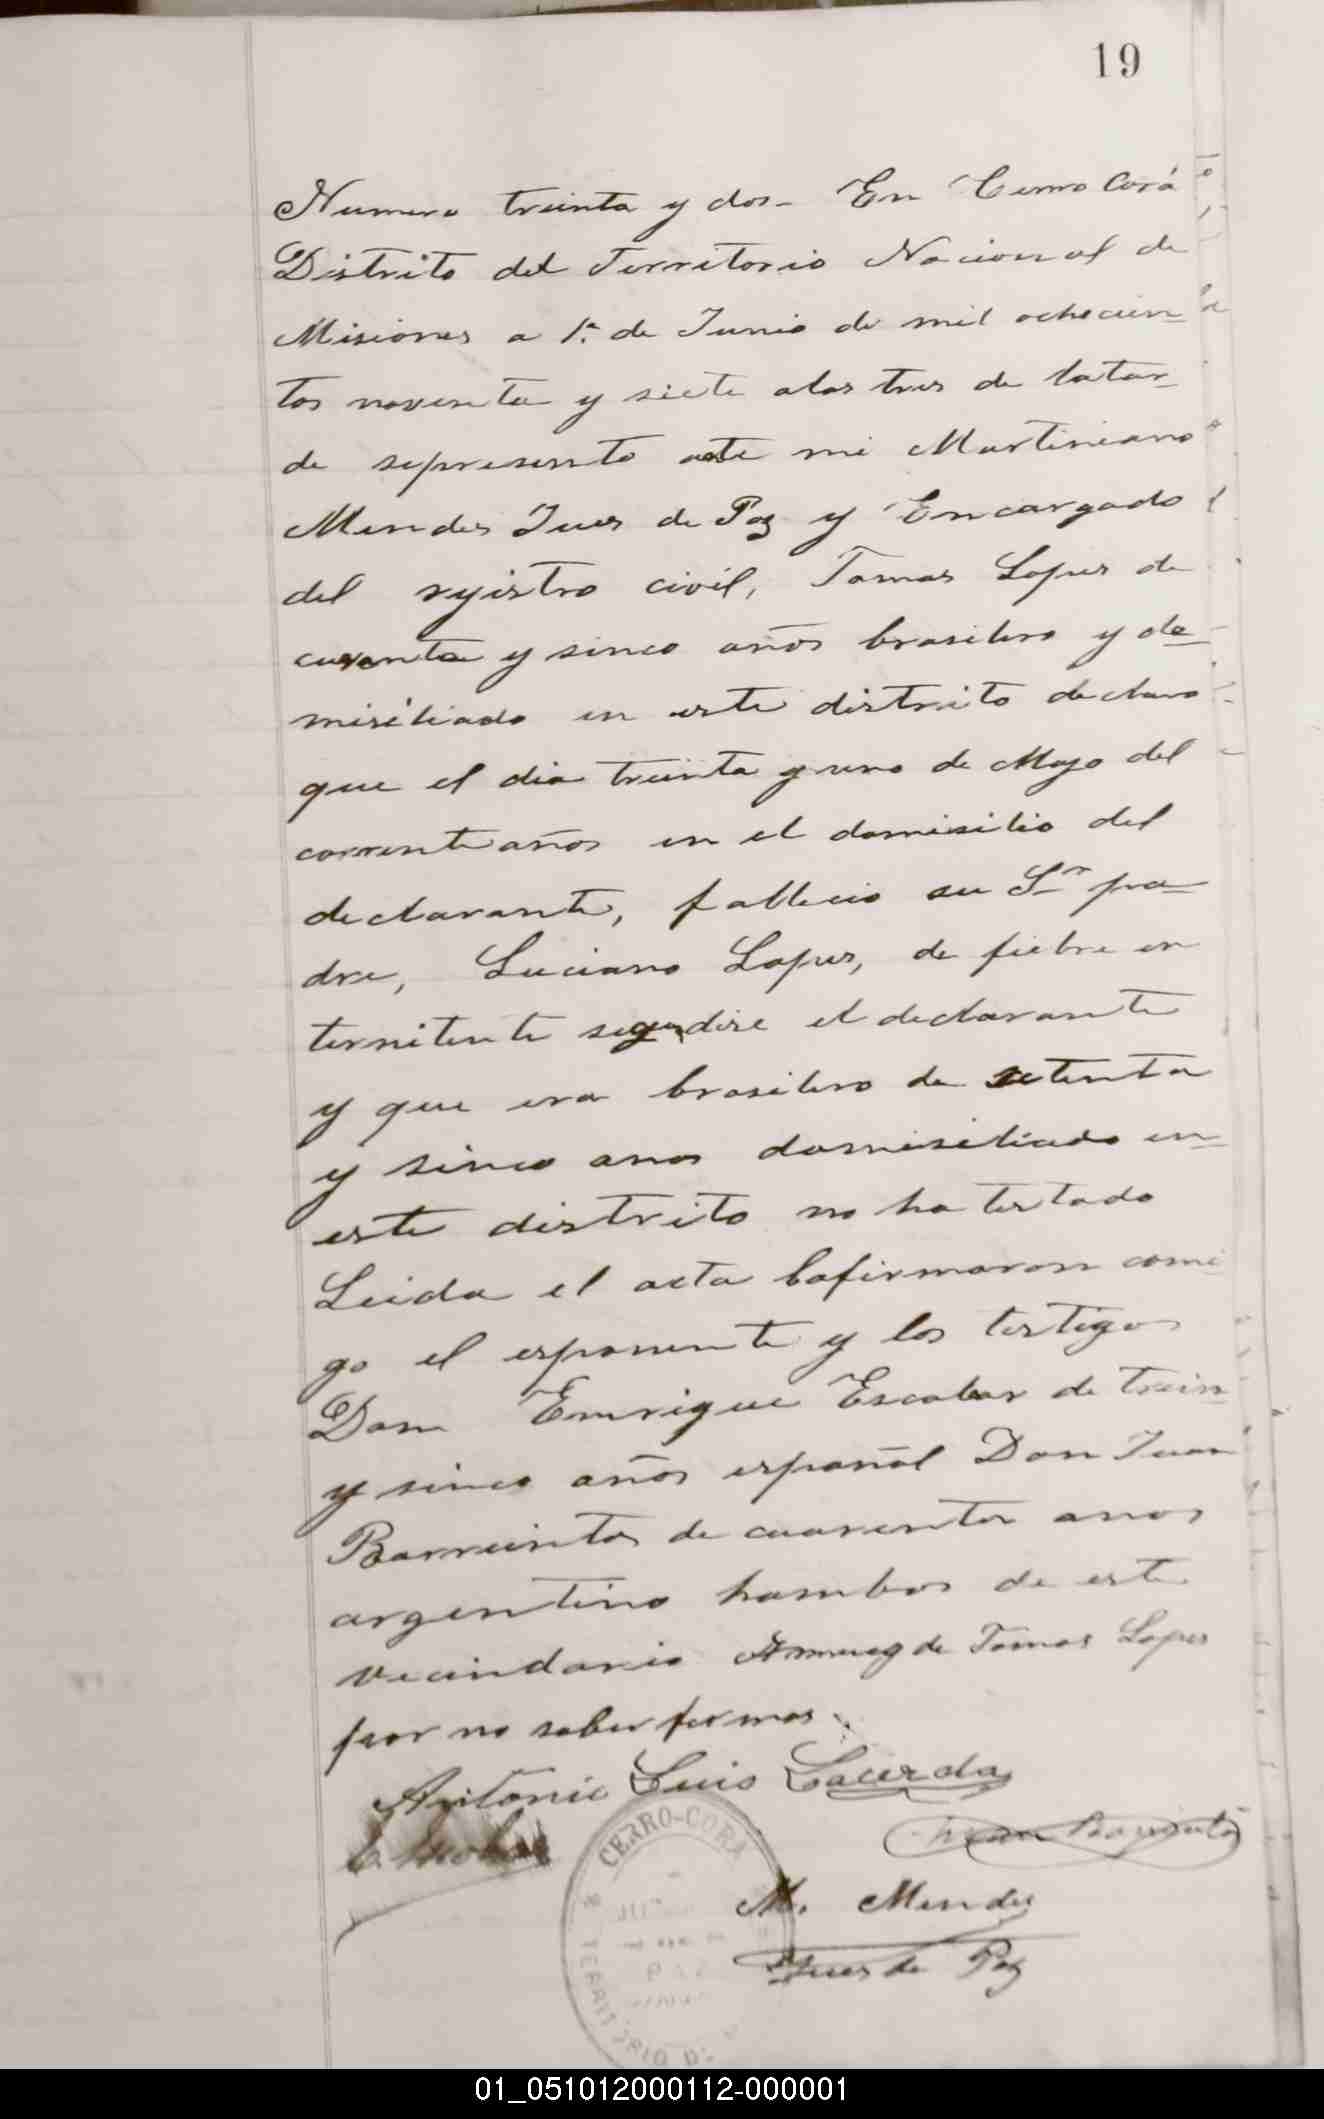 19
Numero treinta y dos - En Cerro Corá
Distrito del Territorio Nacional de
Misiones a 1º de Junio de mil ochocien
tos noventa y siete alas tres de latar
de sepresento ante mi Martiniano
Mendes Jues de Paz y Encargado
del rejistro civil, Tomas Lopes de
cuarenta y sinco años brasilero y do
misiliado en este distrito declaro
que el dia treinta y uno de Mayo del
corrente años en el domisilio del
declarante, fallecio su Sr pa
dre, Luciano Lopes, de fiebre en
termitente segun dise el declarante
y que era brasilero de setenta
y sinco anos domisiliado en
este distrito no ha testado
Leida el acta lafirmaron comi
go el esponente y los testigos
Don Emrique Escobar de trein
y sinco años español Don Juan
Barrientos de cuarenta anos
argentino hambos de este
vecindario Aruego de Tomas Lopes
por no saber firmar.
Antonio Luis Lacerda
E. Escobar
Juan Barrientos
CERRO-CORA
M. Mendes
Jues de Paz
TERRITORIO DE
01_051012000112-000001